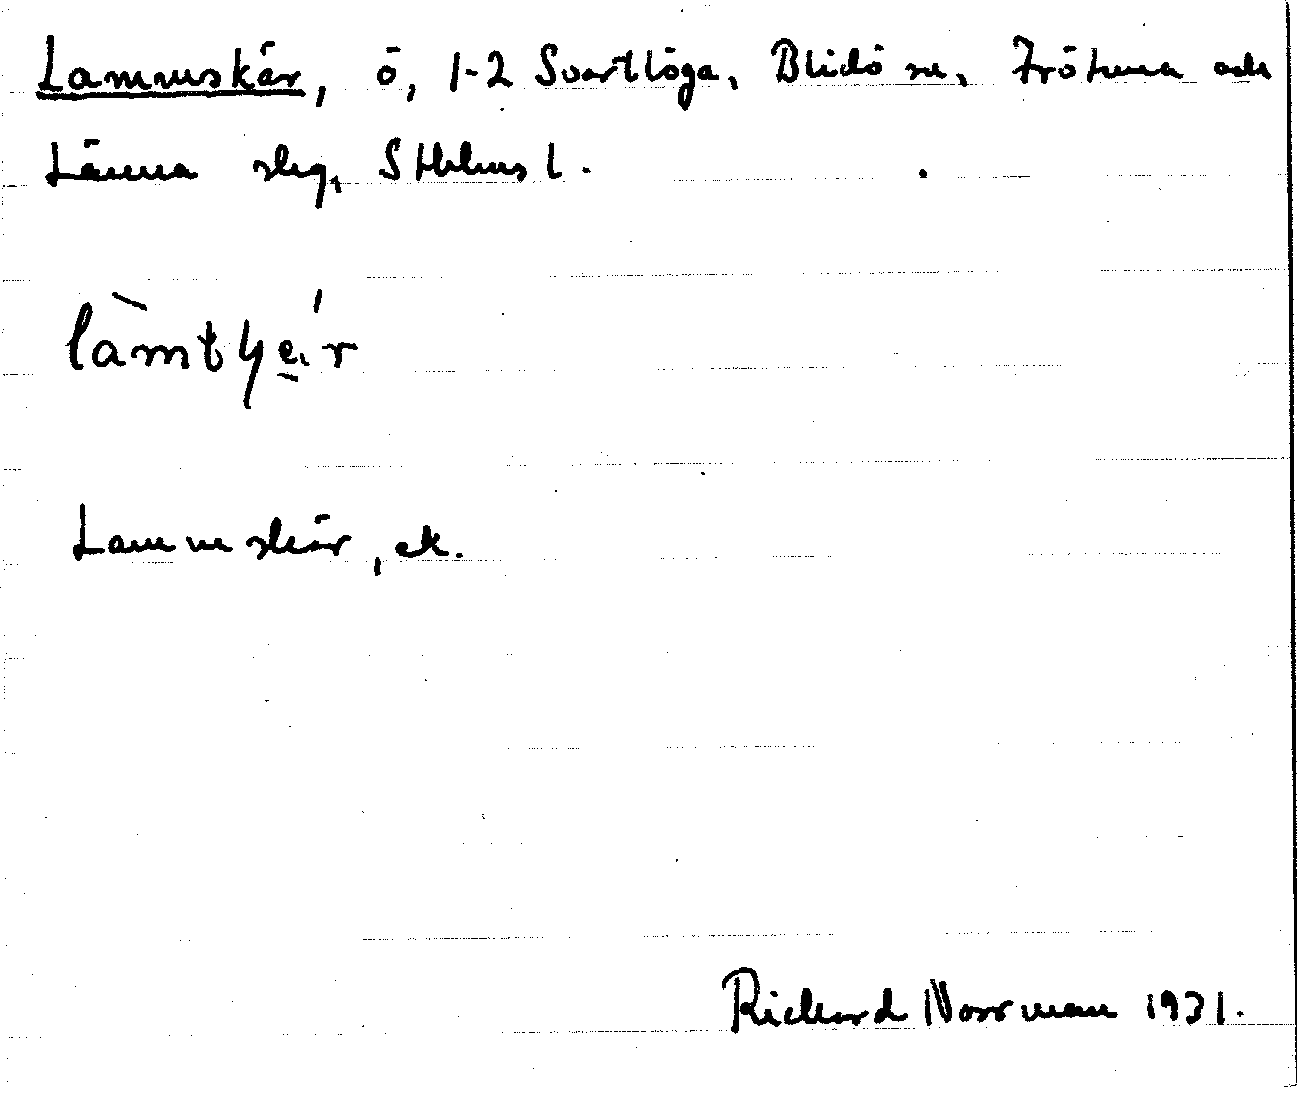 Lammskär, ö, 1-2 Svartlöga, Blidö sn, Frötuna och
Länna slg, Sthlms l.
Lammskär, ek.
Rickard Norrman 1931.